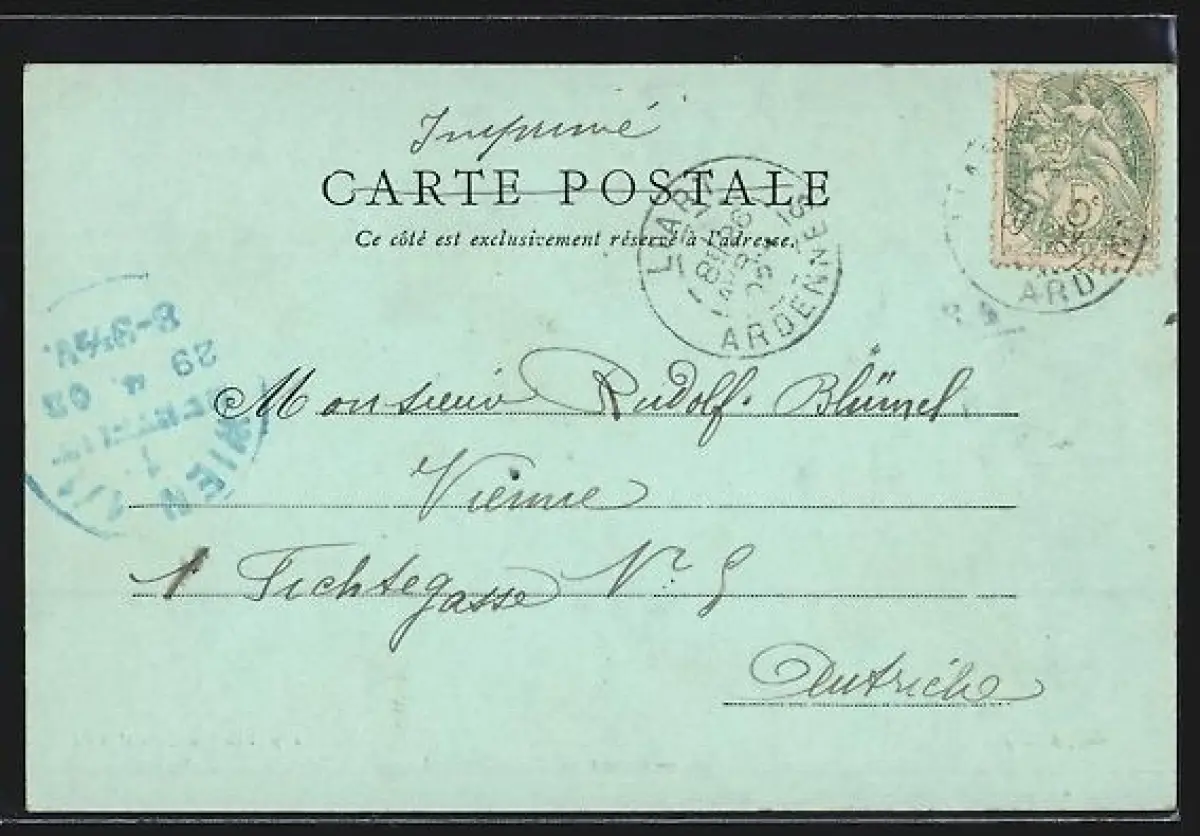 Imprimé
CARTE POSTALE
Ce côté est exclusivement réservé à l'adresse.
LIART
ARDENNES
5c
ARD
8-9½V.
29 4 02
WIEN
Monsieur Rudolf Blümel
Vienne
1 Fichtegasse Nr. 9
Autriche